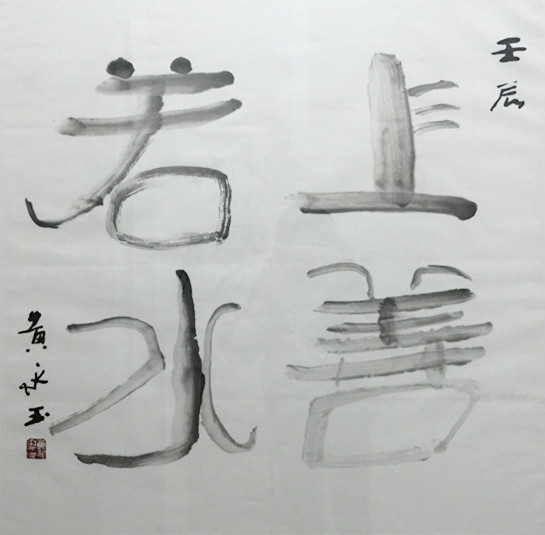 壬辰
上善
若水
黃永玉